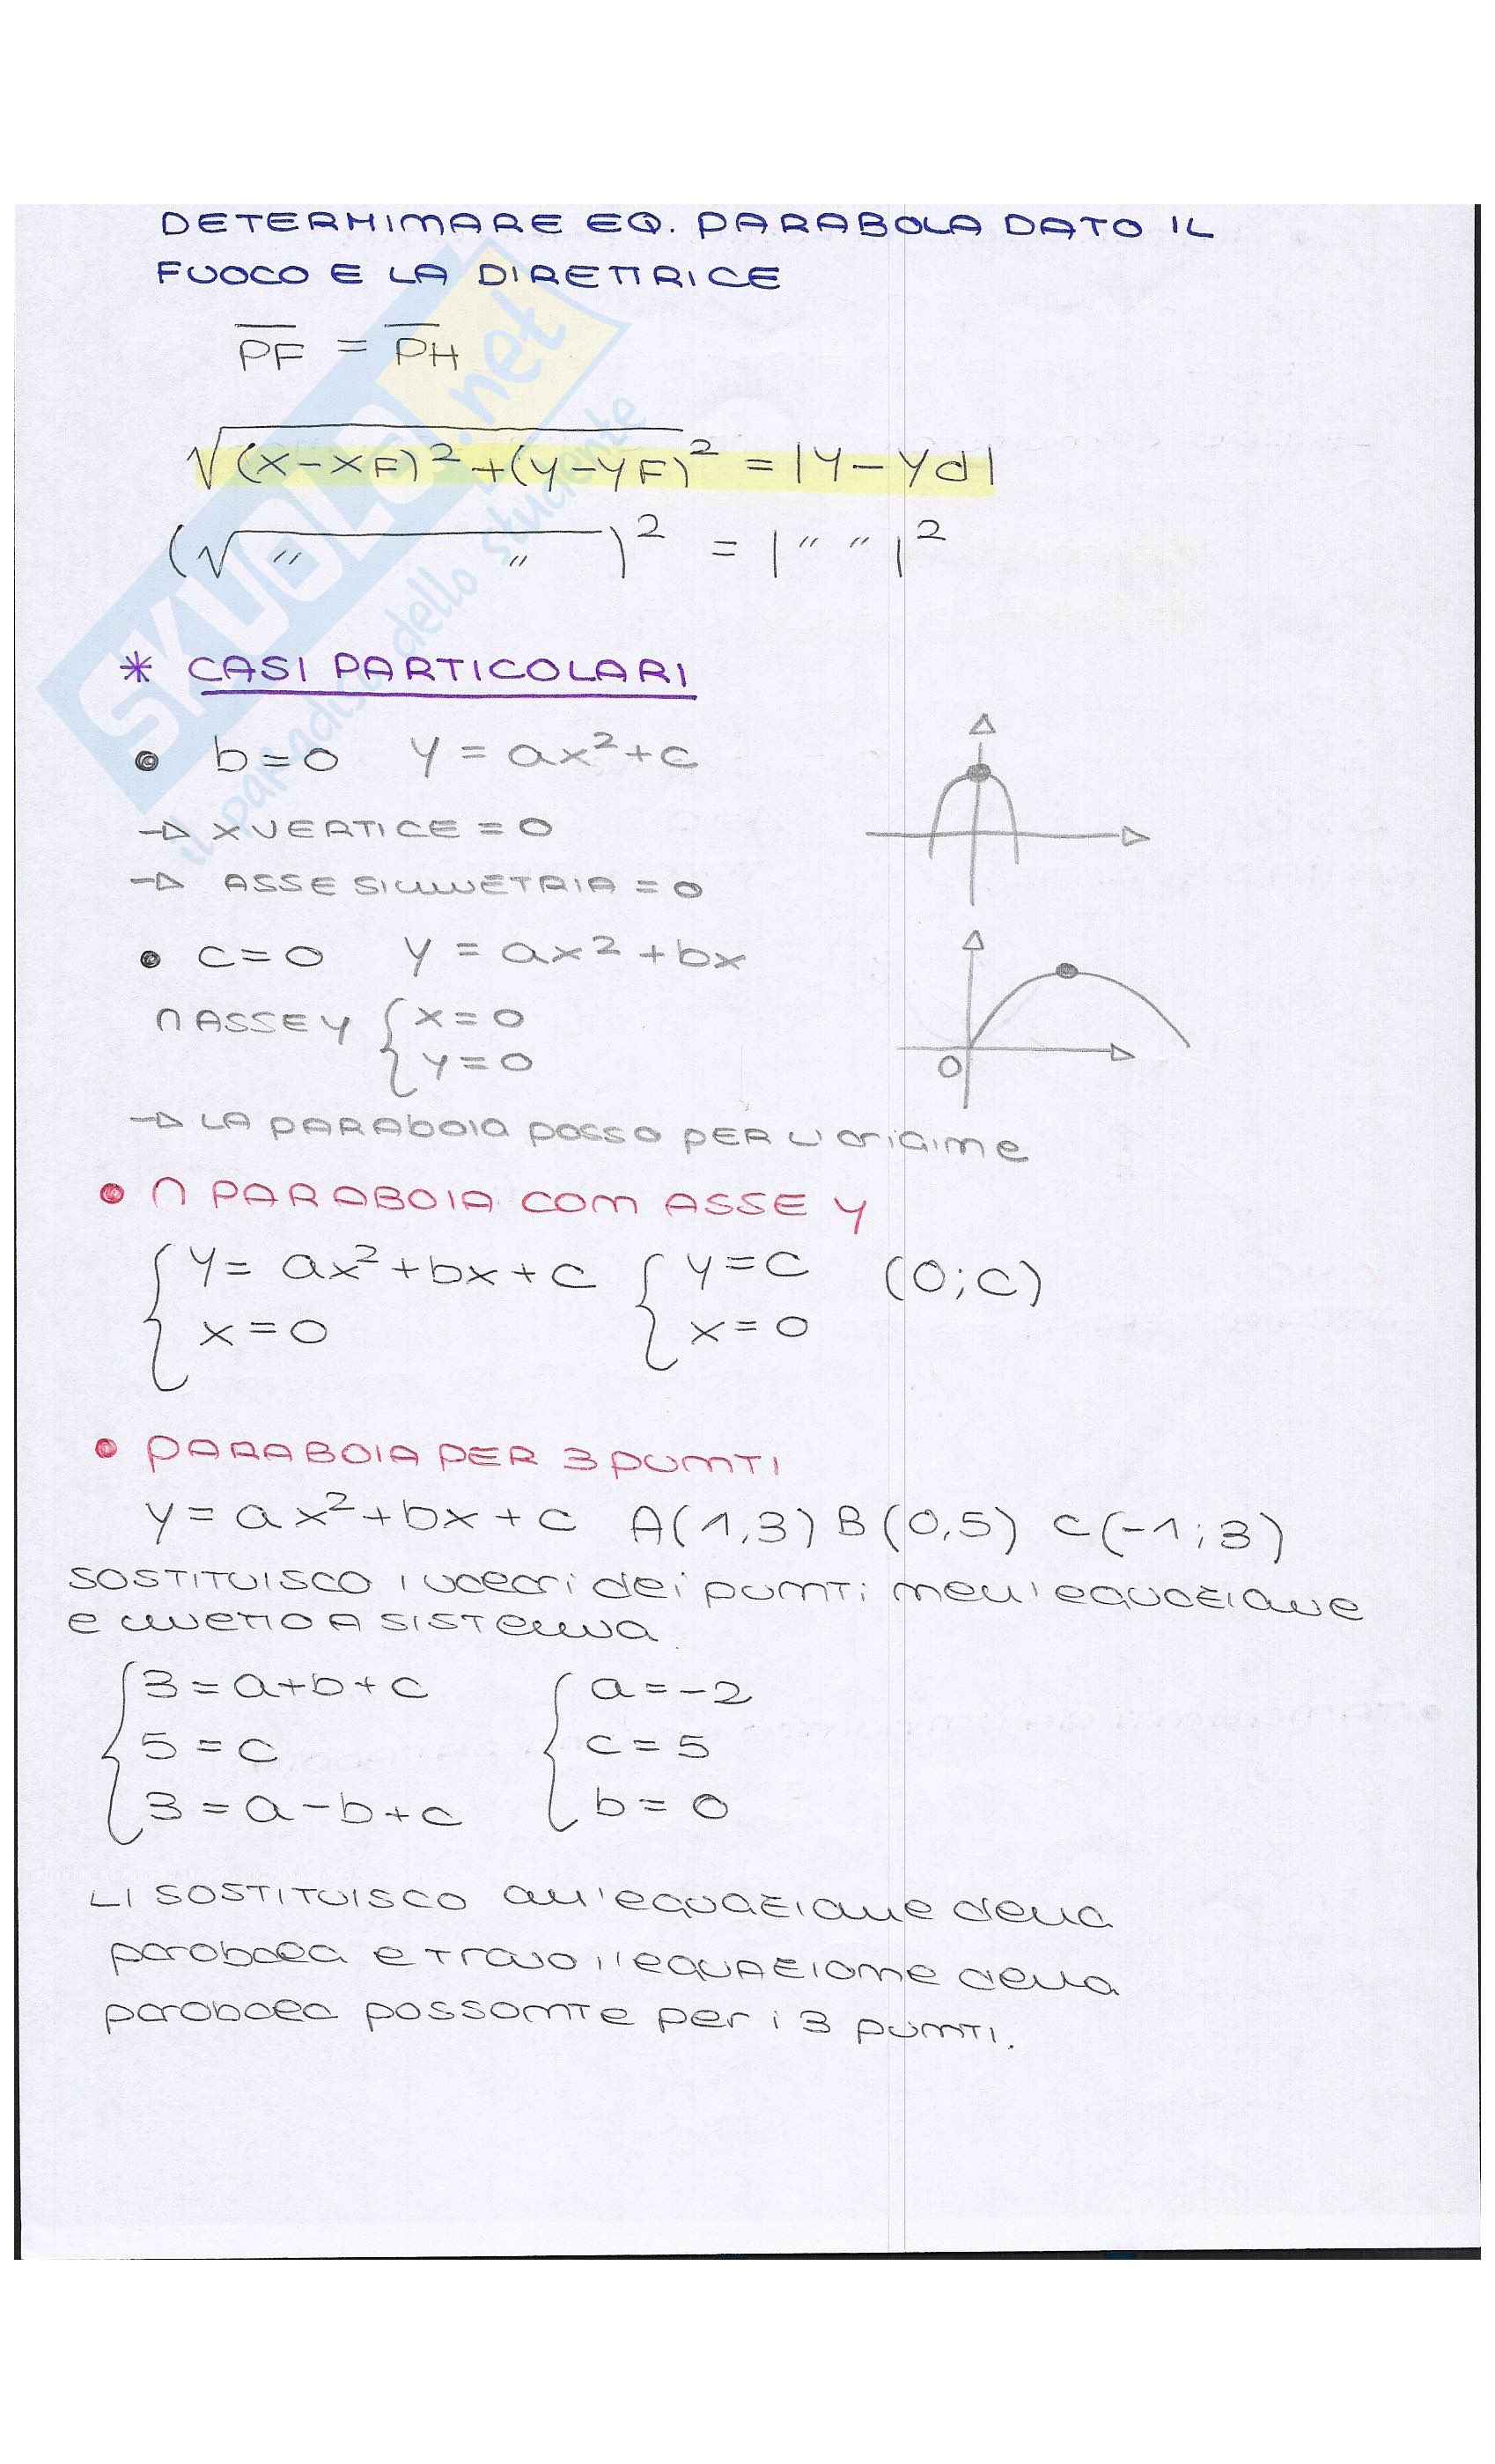 DETERMINARE EQ. PARABOLA DATO IL
FUOCO E LA DIRETTRICE
PF = PH
√(x-xF)²+(y-yF)² = |y-yd|
(√ " " )² = | " " |²
* CASI PARTICOLARI
• b=0 y=ax²+c
→ X VERTICE = 0
→ ASSE SIMMETRIA = 0
• c=0 y=ax²+bx
∩ ASSE y { x=0
y=0
O
→ LA PARABOLA PASSA PER L'ORIGINE
• ∩ PARABOLA CON ASSE y
{ y=ax²+bx+c { y=c (0;c)
x=0 x=0
• PARABOLA PER 3 PUNTI
y=ax²+bx+c A(1,3) B(0,5) C(-1;3)
SOSTITUISCO I VALORI DEI PUNTI NELL'EQUAZIONE
E METTO A SISTEMA
{ 3=a+b+c { a=-2
5=c c=5
3=a-b+c b=0
LI SOSTITUISCO ALL'EQUAZIONE DELLA
PARABOLA E TROVO L'EQUAZIONE DELLA
PARABOLA PASSANTE PER I 3 PUNTI.
SKUOLA.net
il paradiso dello studente